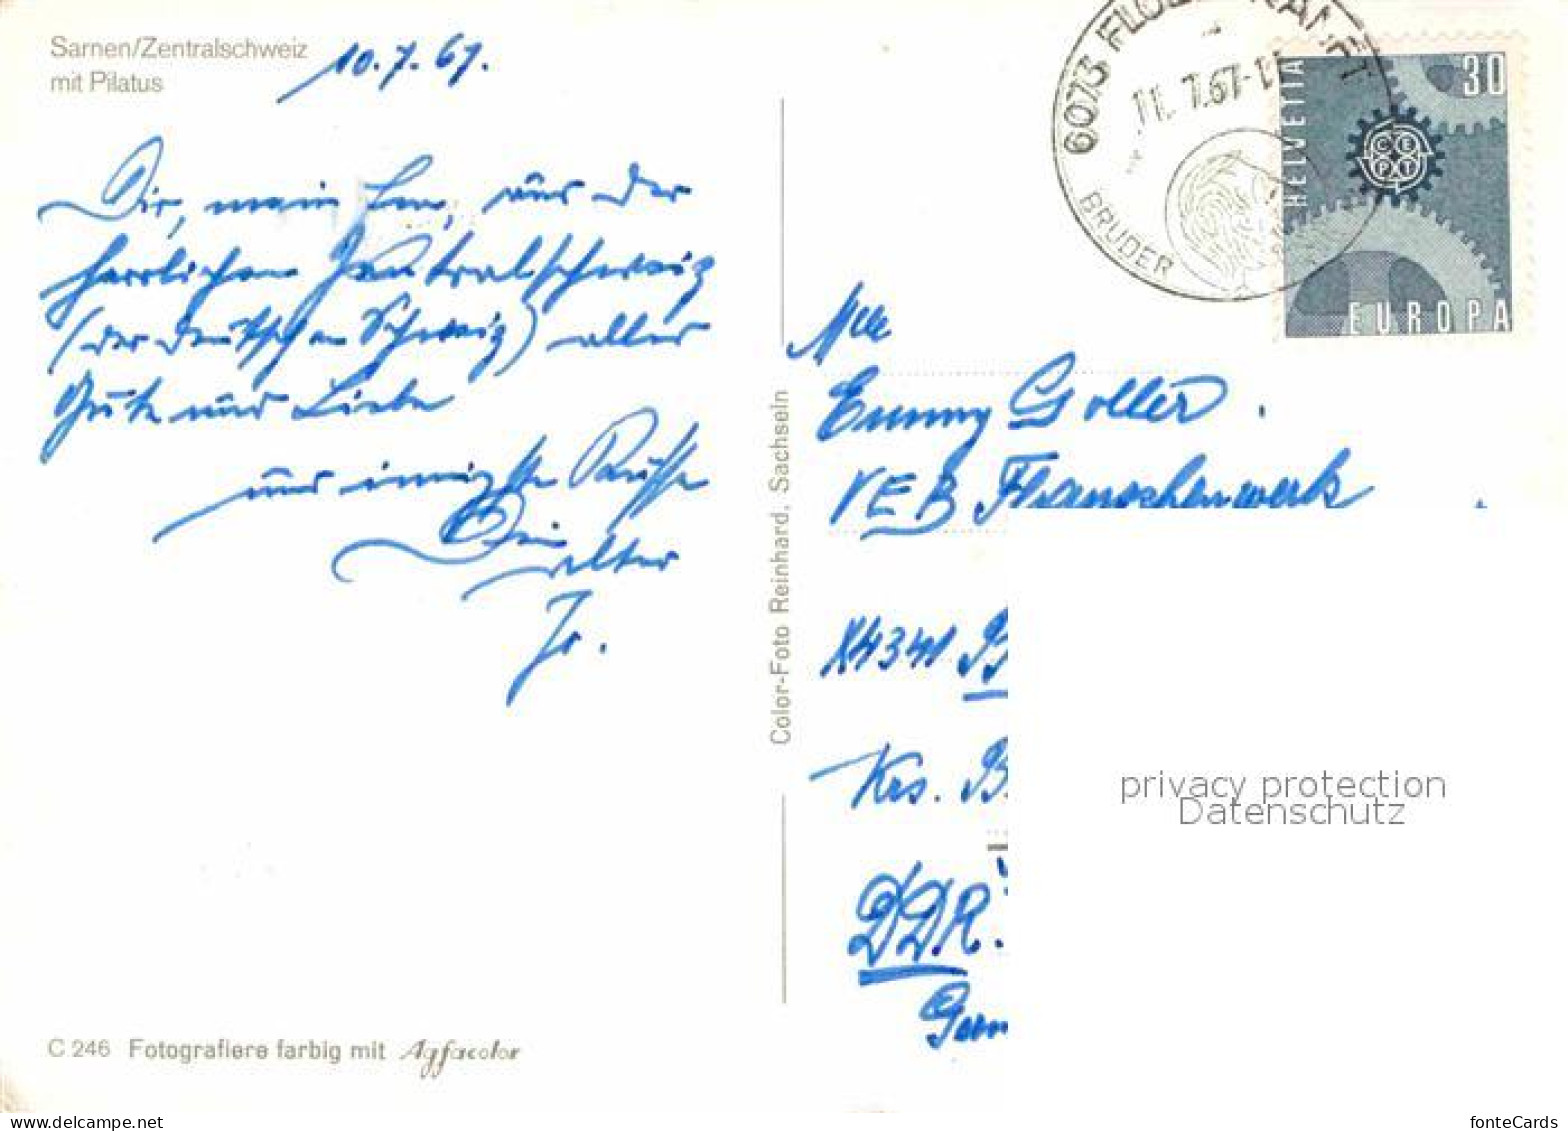 Sarnen/Zentralschweiz
mit Pilatus
10.7.67.
Dir, mein aus der
herrlichen Zentralschweiz
(der deutschen Schweiz) alles
Gute und Liebe
und innigste Küsse
Dein
alter
6073 FLÜELI-RANFT
11. 7.67-1
BRUDER
HELVETIA
30
CEPT
EUROPA
Color-Foto Reinhard, Sachseln
Goller.
VEB Flanschenwerk
X4341 B
Krs. B.
DDR.
Germ
privacy protection
Datenschutz
C 246 Fotografiere farbig mit Agfacolor
fonteCards
www.delcampe.net